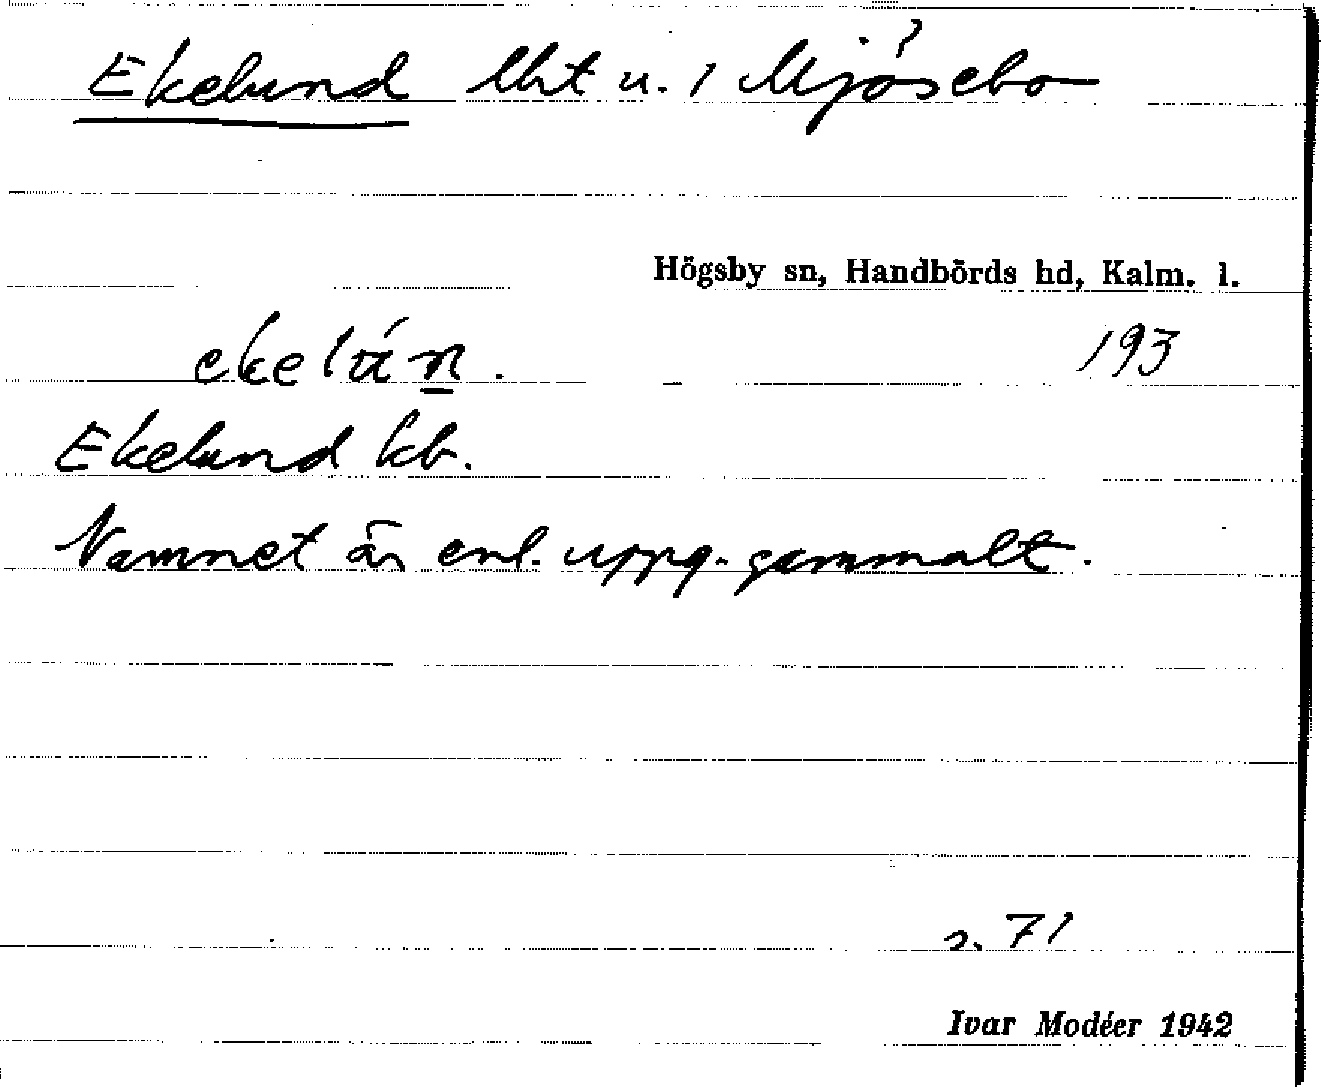 Ekelund lht u. 1 Mjösebo
Högsby sn, Handbörds hd, Kalm. l.
193
Ekelund kb.
Namnet är enl. uppg. gammalt.
s. 71
Ivar Modéer 1942